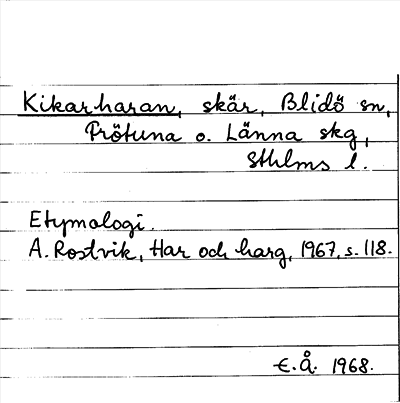 Kikarharan, skär, Blidö sn,
Frötuna o. Länna skg,
Sthlms l.
Etymologi.
A. Rostvik, Har och harg, 1967, s. 118.
E.Å. 1968.